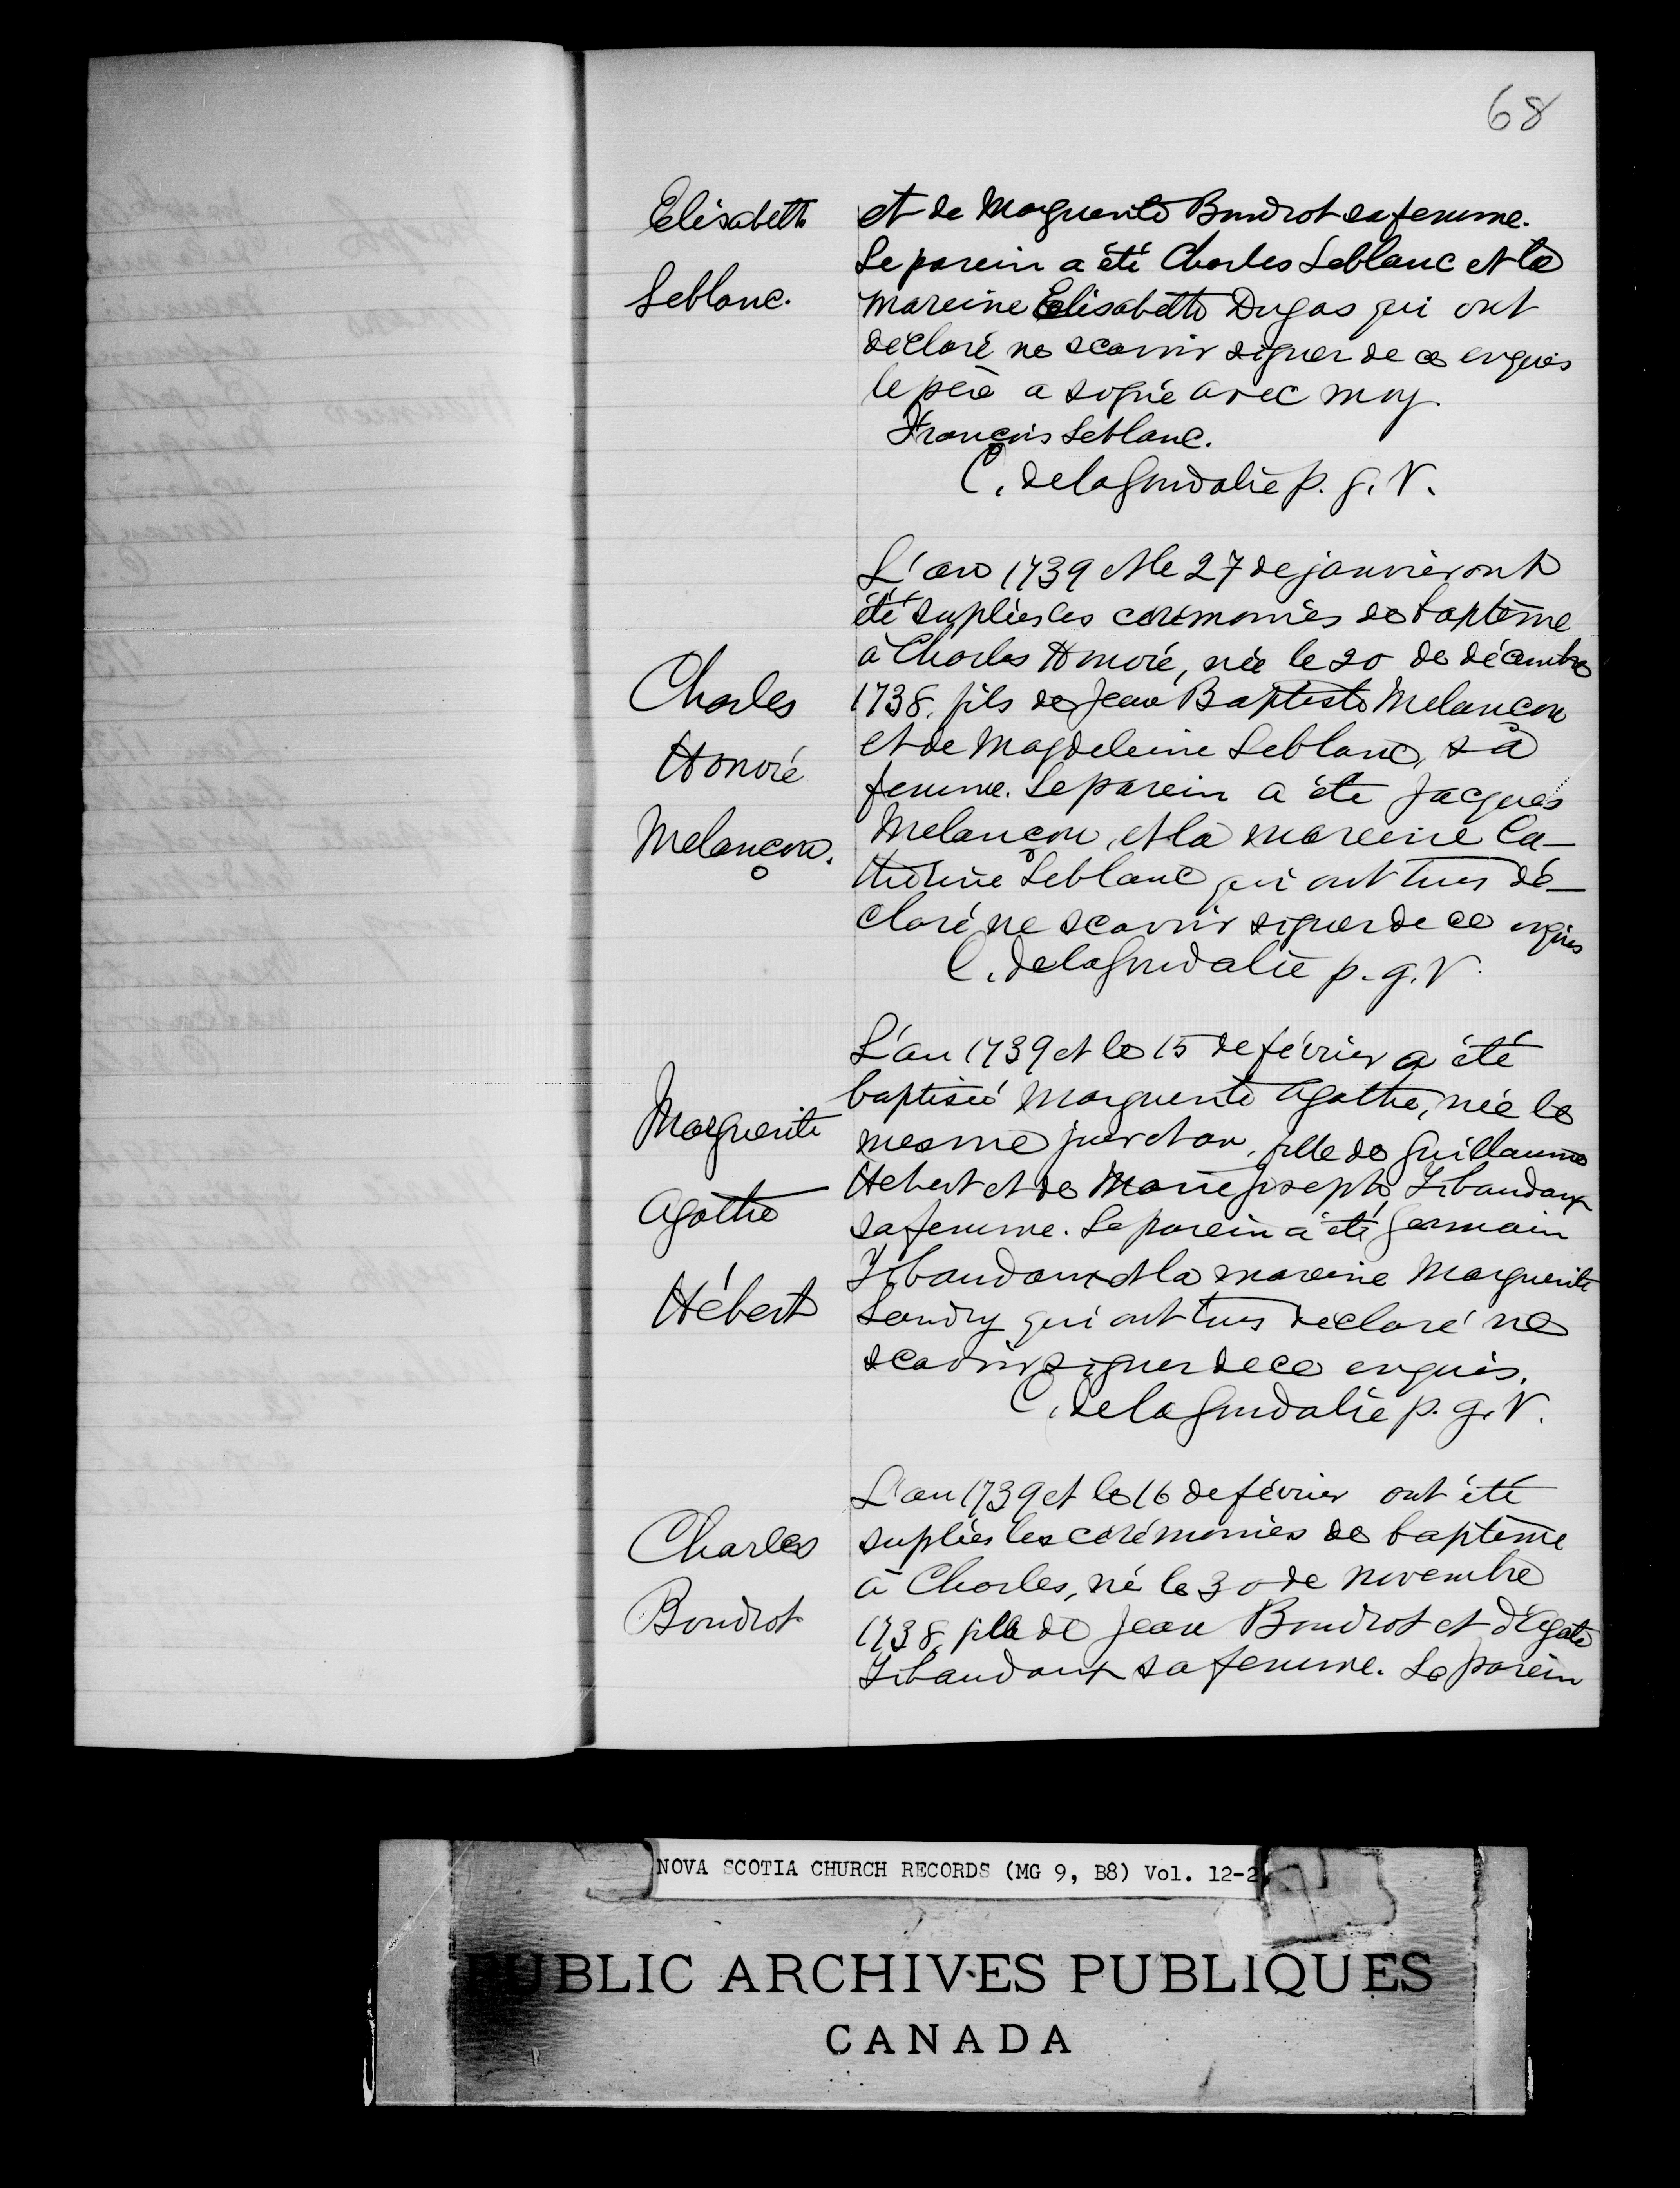 68
Elisabeth
Leblanc.
et de Marguerite Boudrot sa femme.
Le parein a été Charles Leblanc et la
mareine Elisabeth Dugas qui ont
déclaré ne scavoir signer de ce enquis
le père a signé avec moy.
François Leblanc.
C. delagoudalie p. g. V.
Charles
Honoré
Melançon.
L'an 1739 et le 27 de janvier ont
été supliés les cérémonies de baptême
à Charles Honoré, née le 20 de décembre
1738, fils de Jean Baptiste Melançon
et de Magdeleine Leblanc, sa
femme. Le parein a été Jacques
Melançon, et la mareine Ca-
therine Leblanc qui ont tous dé-
claré ne scavoir signer de ce enquis
C. delagoudalie p. g. V.
Marguerite
Agathe
Hébert
L'an 1739 et le 15 de février a été
baptiseé Marguerite Agathe, née le
mesme jour et an, fille de Guillaume
Hebert et de Marie josephe Tibaudaux
sa femme. Le parein a été Germain
Tibaudaux et la mareine Marguerite
Landry qui ont tous déclaré ne
scavoir signer de ce enquis.
C. delagoudalie p. g. V.
Charles
Boudrot
L'an 1739 et le 16 de février ont été
supliés les cérémonies de baptême
à Charles, né le 30 de novembre
1738, fils de Jean Boudrot et d'Agate
Tibaudaux sa femme. Le parein
NOVA SCOTIA CHURCH RECORDS (MG 9, B8) Vol. 12-2
PUBLIC ARCHIVES PUBLIQUES
CANADA